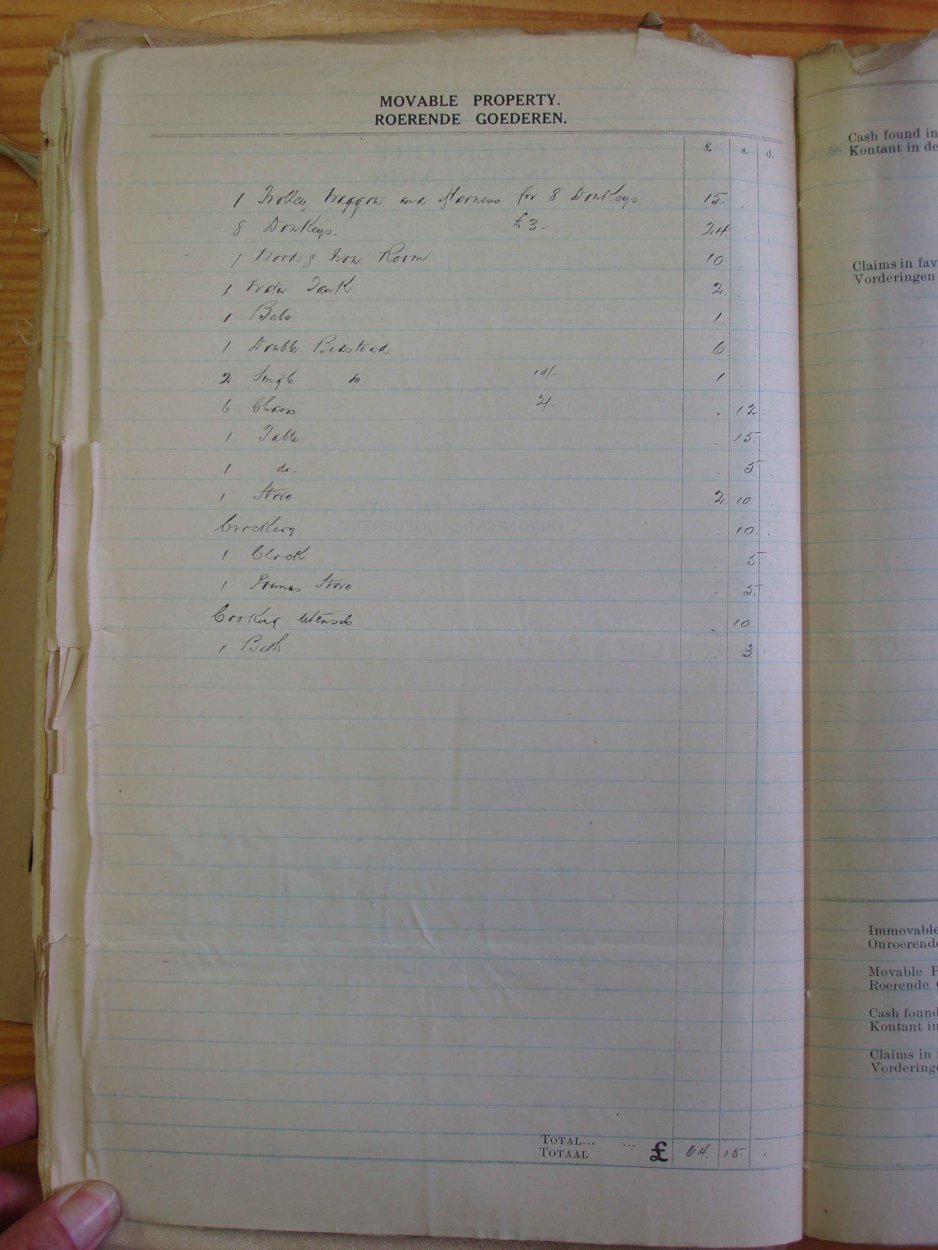 MOVABLE PROPERTY.
ROERENDE GOEDEREN.
£ s. d.
1 Trolley Waggon and Harness for 8 Donkeys. 15.
8 Donkeys. £3-. 24
1 Wood & Iron Room 10
1 Water Tank. 2
1 1
1 Double Bedstead 6
2 Single do. 10/- 1
6 Chairs 2/- 12
1 Table 15
1 do. 5
1 Stove 2 10
Crockery 10
1 Clock 5
1 Primus Stove 5
Cooking Utensils 10
1 Bath. 3
TOTAL... ... £ 64. 15.
TOTAAL
Cash found in
Kontant in de
Claims in fav
Vorderingen
Immovable
Onroerende
Movable P
Roerende G
Cash found
Kontant in
Claims in
Vordering